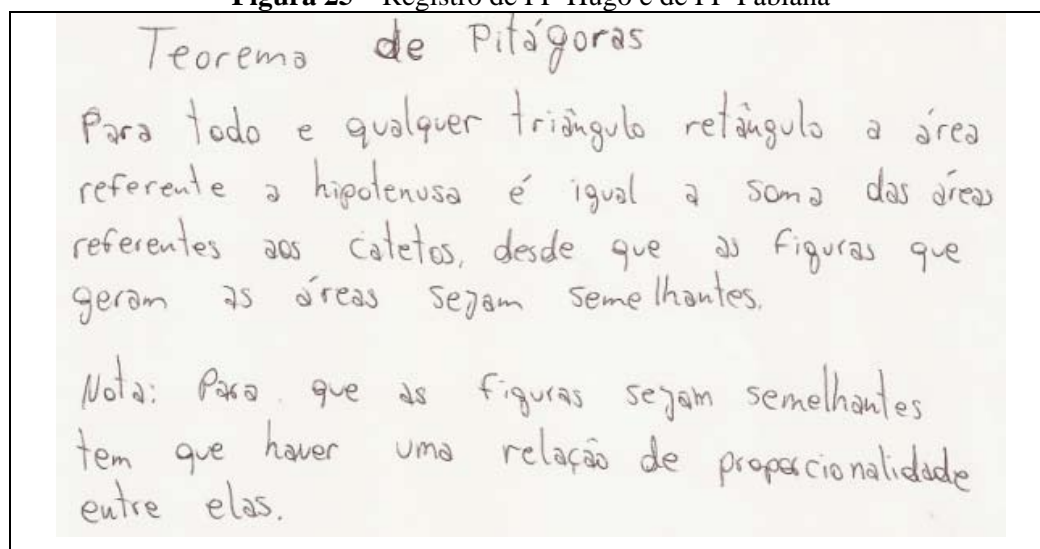 Registro de Hugo e de Fabiana
Teorema de Pitágoras
Para todo e qualquer triângulo retângulo a área
referente a hipotenusa é igual a soma das áreas
referentes aos catetos, desde que as figuras que
geram as áreas sejam semelhantes.
Nota: Para que as figuras sejam semelhantes
tem que haver uma relação de proporcionalidade
entre elas.